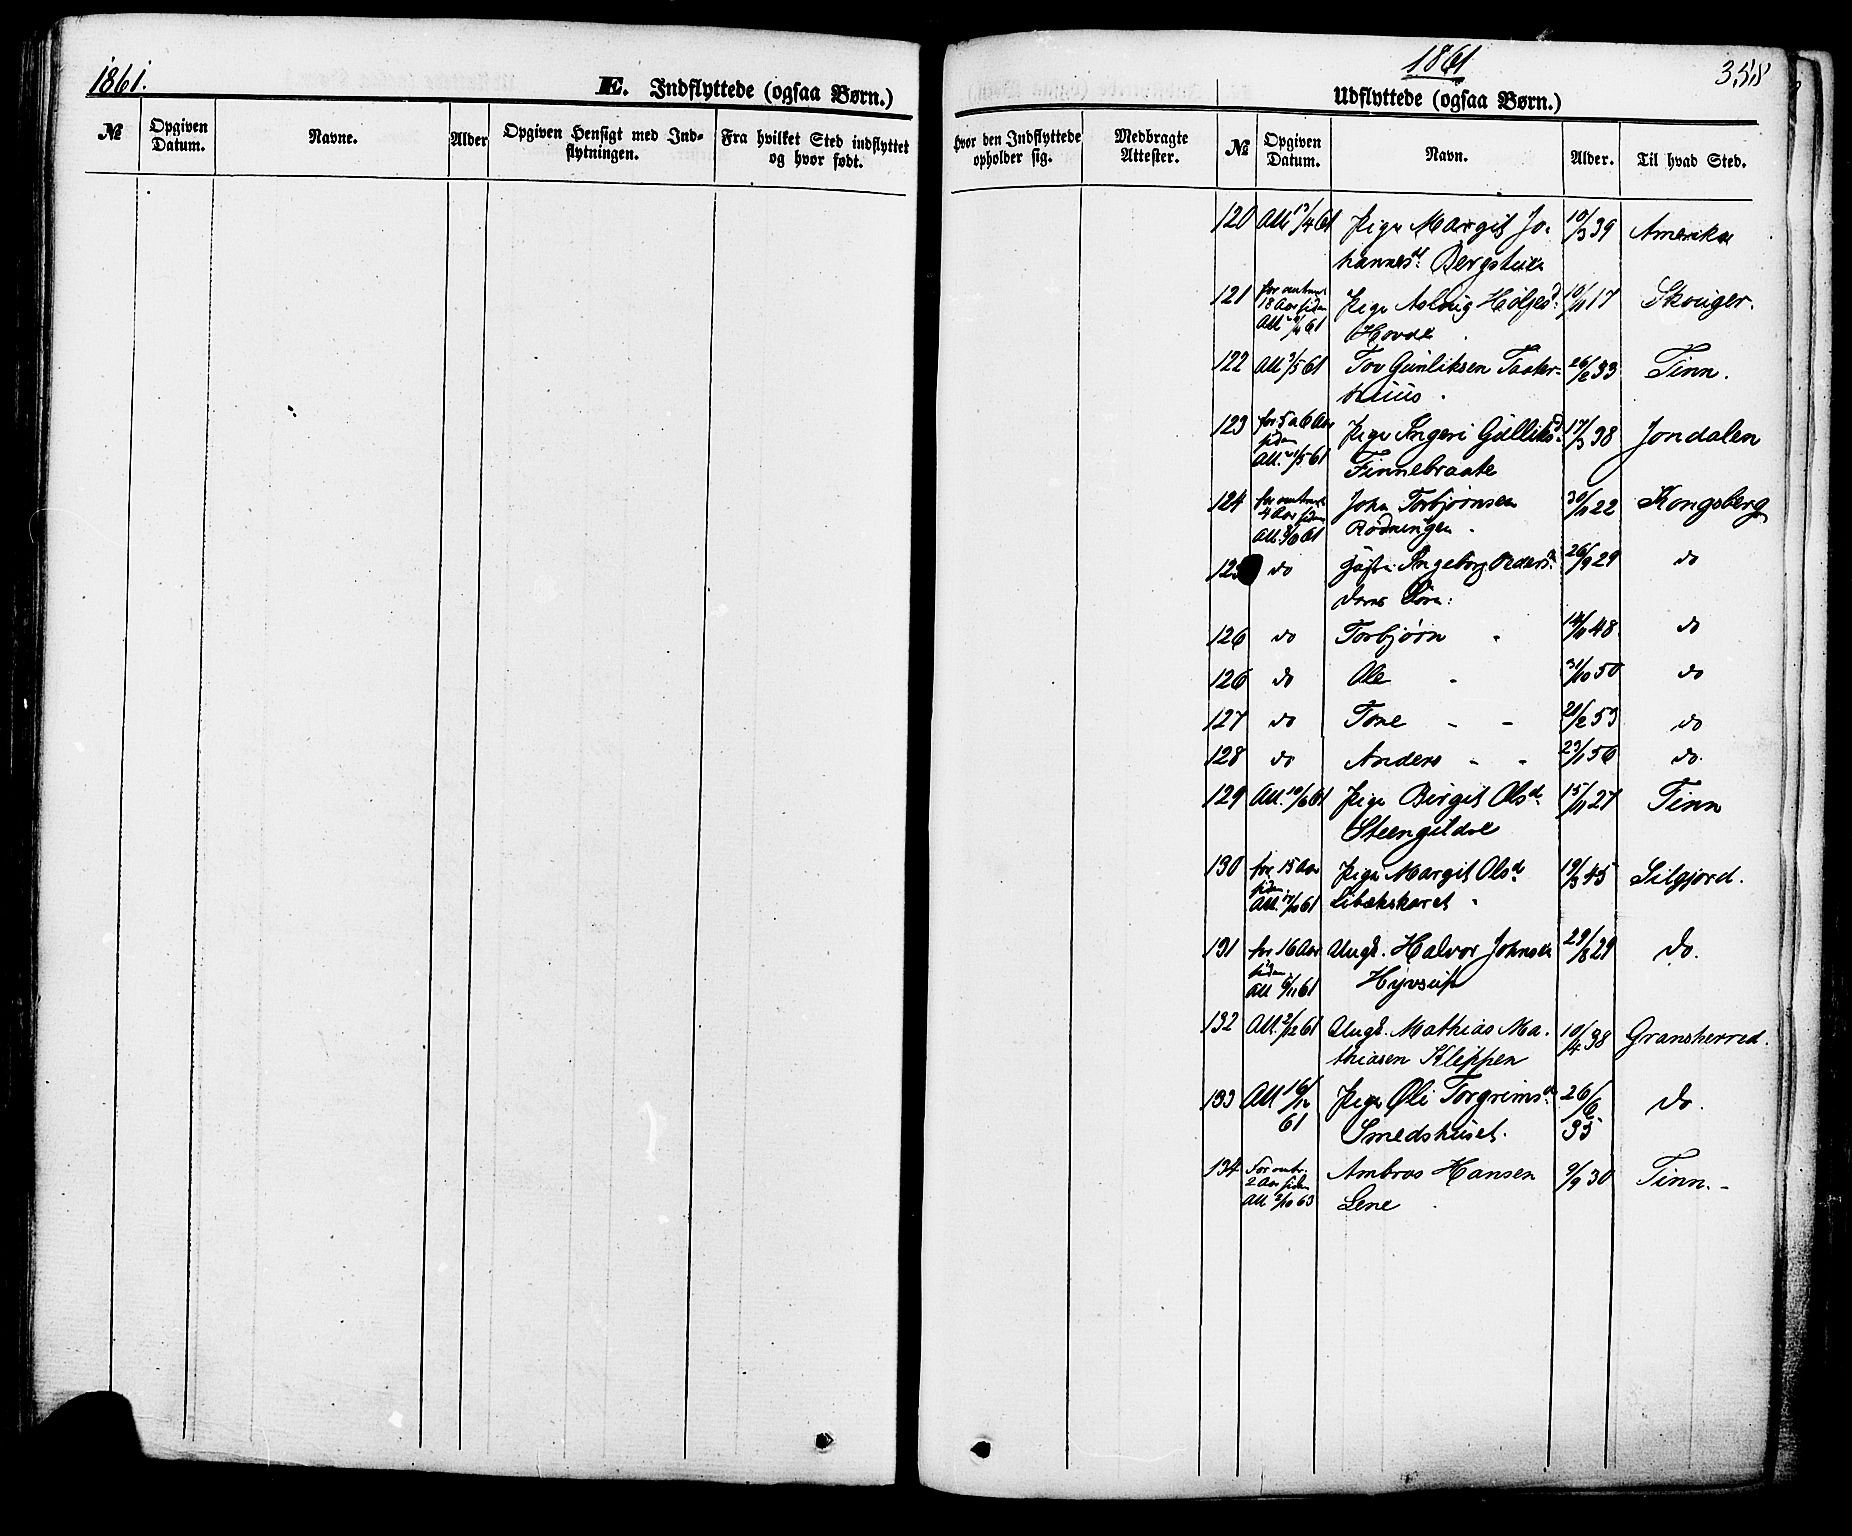 1861.
E. Indflyttede (ogsaa Børn.)
№ Opgiven Datum. Navne. Alder Opgiven Hensigt med Indflytningen. Fra hvilket Sted indflyttet og hvor født.
1861
358
Udflyttede (ogsaa Børn.)
hvor den Indflyttede opholder sig. Medbragte Attester. № Opgiven Datum. Navn. Alder. Til hvad Sted.
120 Att 12/4 61 Pige Margit Jo- 10/3 39 Amerika
hannesd. Bergstuen
121 for omtrent 18 Aar siden Pige Asloug Høljesd. 10/11 17 Skouger.
Att 61 Hovde
122 Att 3/5 61 Tov Gunliksen Taater- 26/2 33 Tinn.
huus.
123 for 5 a 6 Aar siden Pige Ingeri Gulliksd. 17/3 38 Jondalen
Att. /5 61 Finnebraate
124 for omtrent 4 Aar siden John Torbjørnsen 30/11 22 Kongsberg
Att 61 Rødningen.
125 do Ingeborg Pedersd. 26/9 29 do
deres Børn:
126 do Torbjørn 48 do
126 do Ole 31/10 50 do
127 do Tone 21/2 53 do
128 do Anders 23/1 56 do.
129 Att. 10/6 61 Pige Birgit Olsd. 15/11 27 Tinn
Steengildre
130 for 15 Aar siden Pige Margit Olsd. 19/3 45 Silgjord.
Att. 17/10 61 Libækskaret
131 for 16 Aar siden Ungk. Halvor Johnsen 29/8 29 do.
Att 6/11 61
132 Att. 2/12 61 Ungk. Mathias Ma- 10/4 38 Gransherred.
thiasen Kleppen
133 Att 16/12 Pige Øli Torgrimsd. 26/6 do.
61 Smedshuset. 35
134 For omtr. 2 Aar siden Ambros Hansen 9/9 30 Tinn.
Att 2/10 63 Lene